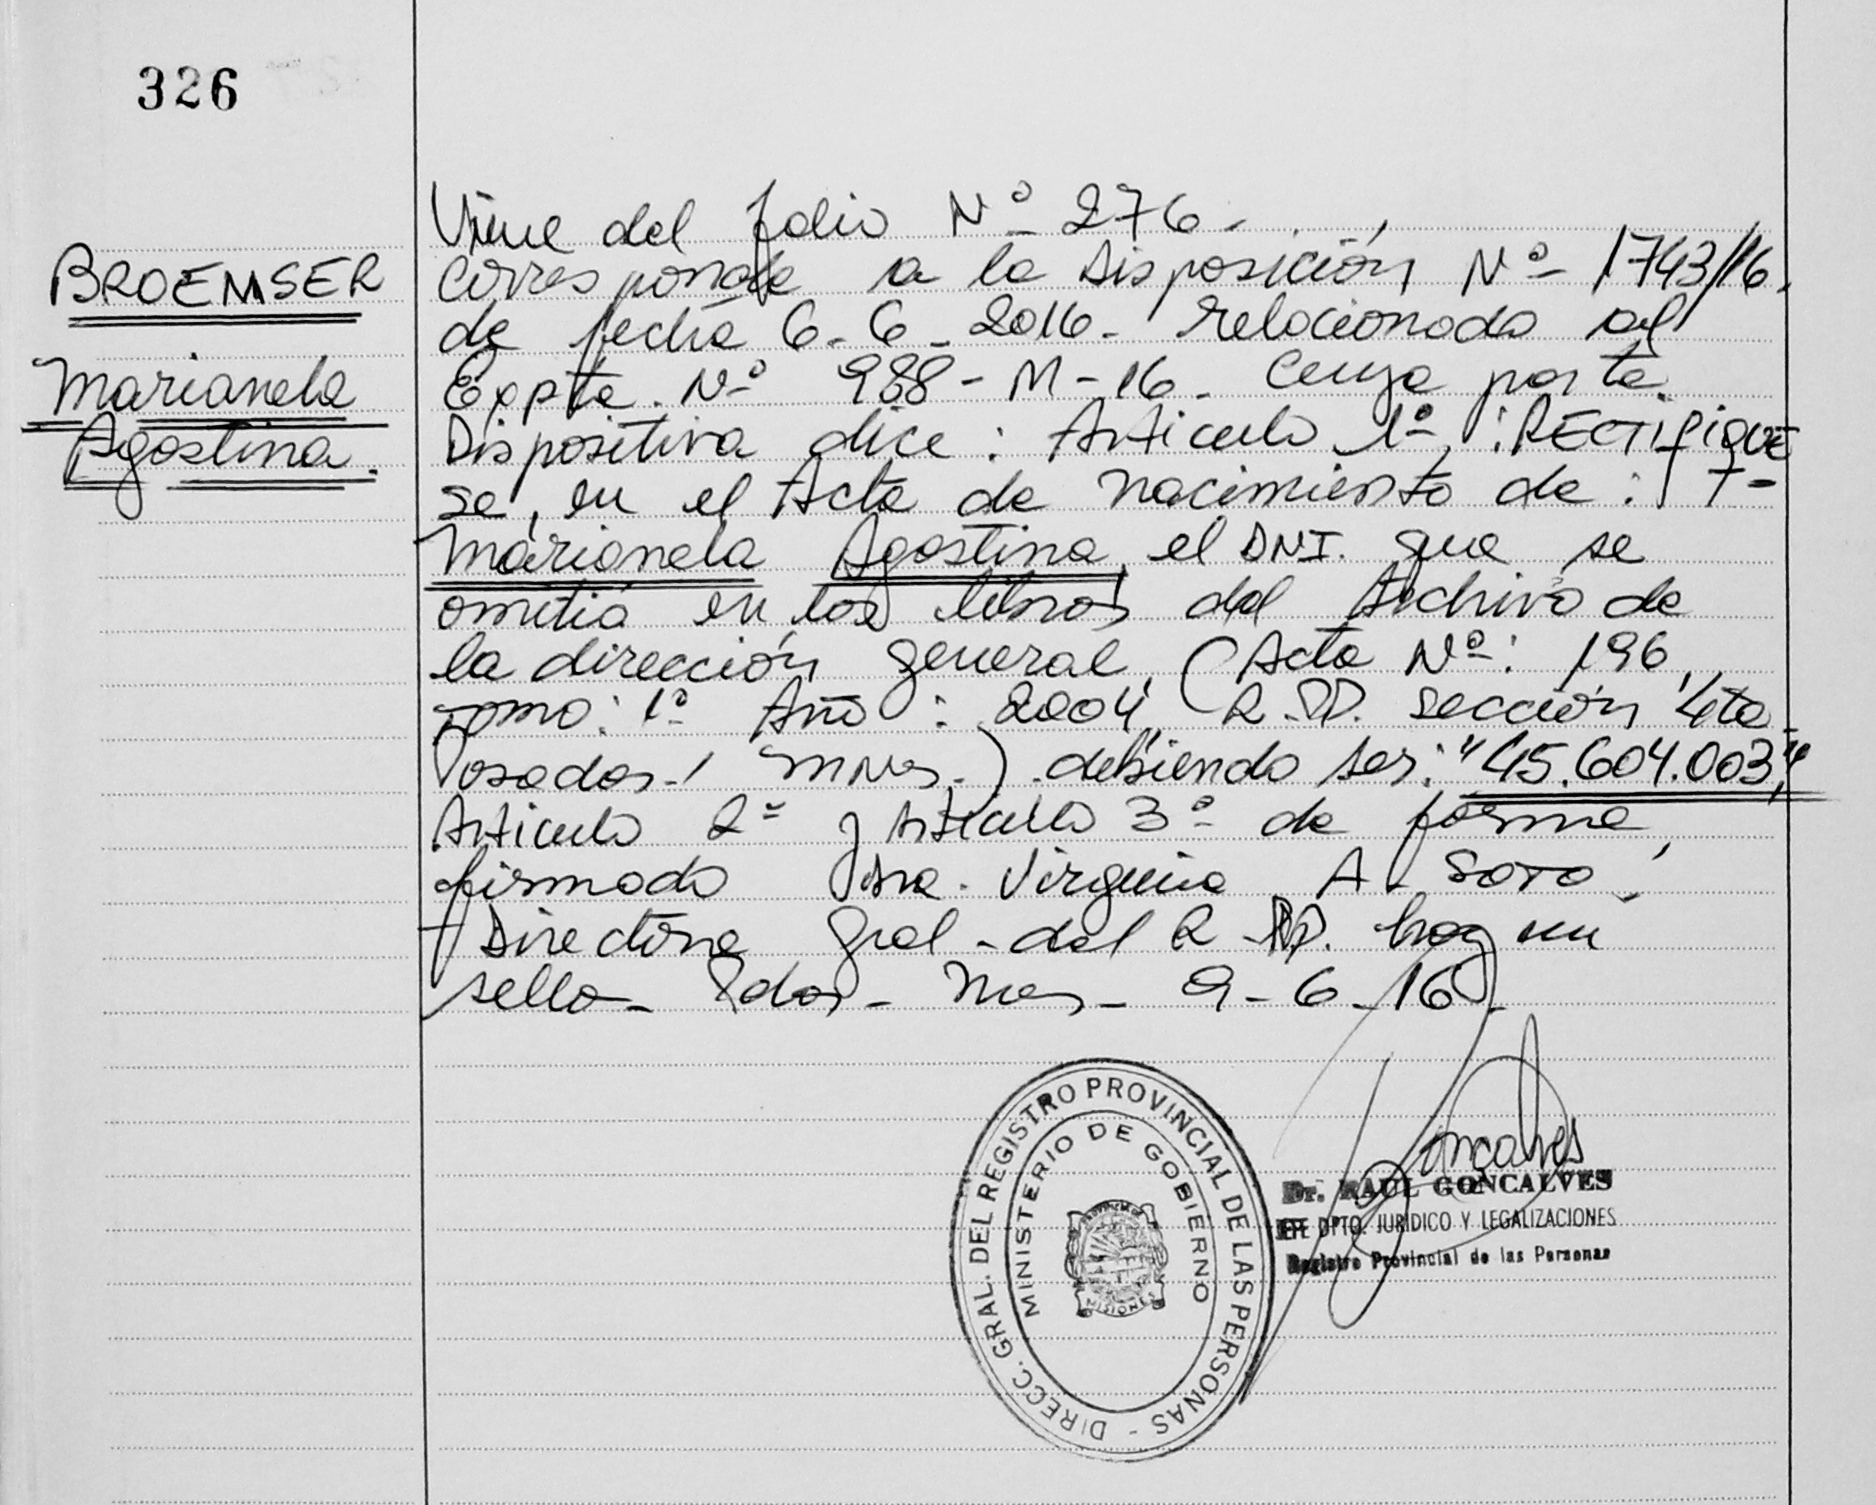 326
BROEMSER
Marianela
Agostina.
Viene del folio Nº 276.
Corresponde a la Disposición Nº 1743/16.
de fecha 6-6-2016- relacionado al
Expte. Nº 988-M-16. Cuya parte
Dispositiva dice: Articulo 1º: RECTIFIQUE
se, en el Acta de nacimiento de:
Marianela Agostina, el DNI. que se
omitió en los libros del Archivo de
la dirección general, (Acta Nº: 196,
Tomo: 1º Año: 2004, R.PP. sección 4ta
Posadas-/ Mnes.) debiendo ser: "45.604.003",
Articulo 2º y Articulo 3º de forma,
firmado Dra. Virginia A. SOTO.
Directora Gral- del R.PP. hay un
sello- Pdas- Mnes- 9-6-16-
Goncalves
Dr. RAUL GONCALVES
JEFE DPTO. JURIDICO Y LEGALIZACIONES
Registro Provincial de las Personas
DIRECC. GRAL. DEL REGISTRO PROVINCIAL DE LAS PERSONAS -
MINISTERIO DE GOBIERNO
MISIONES